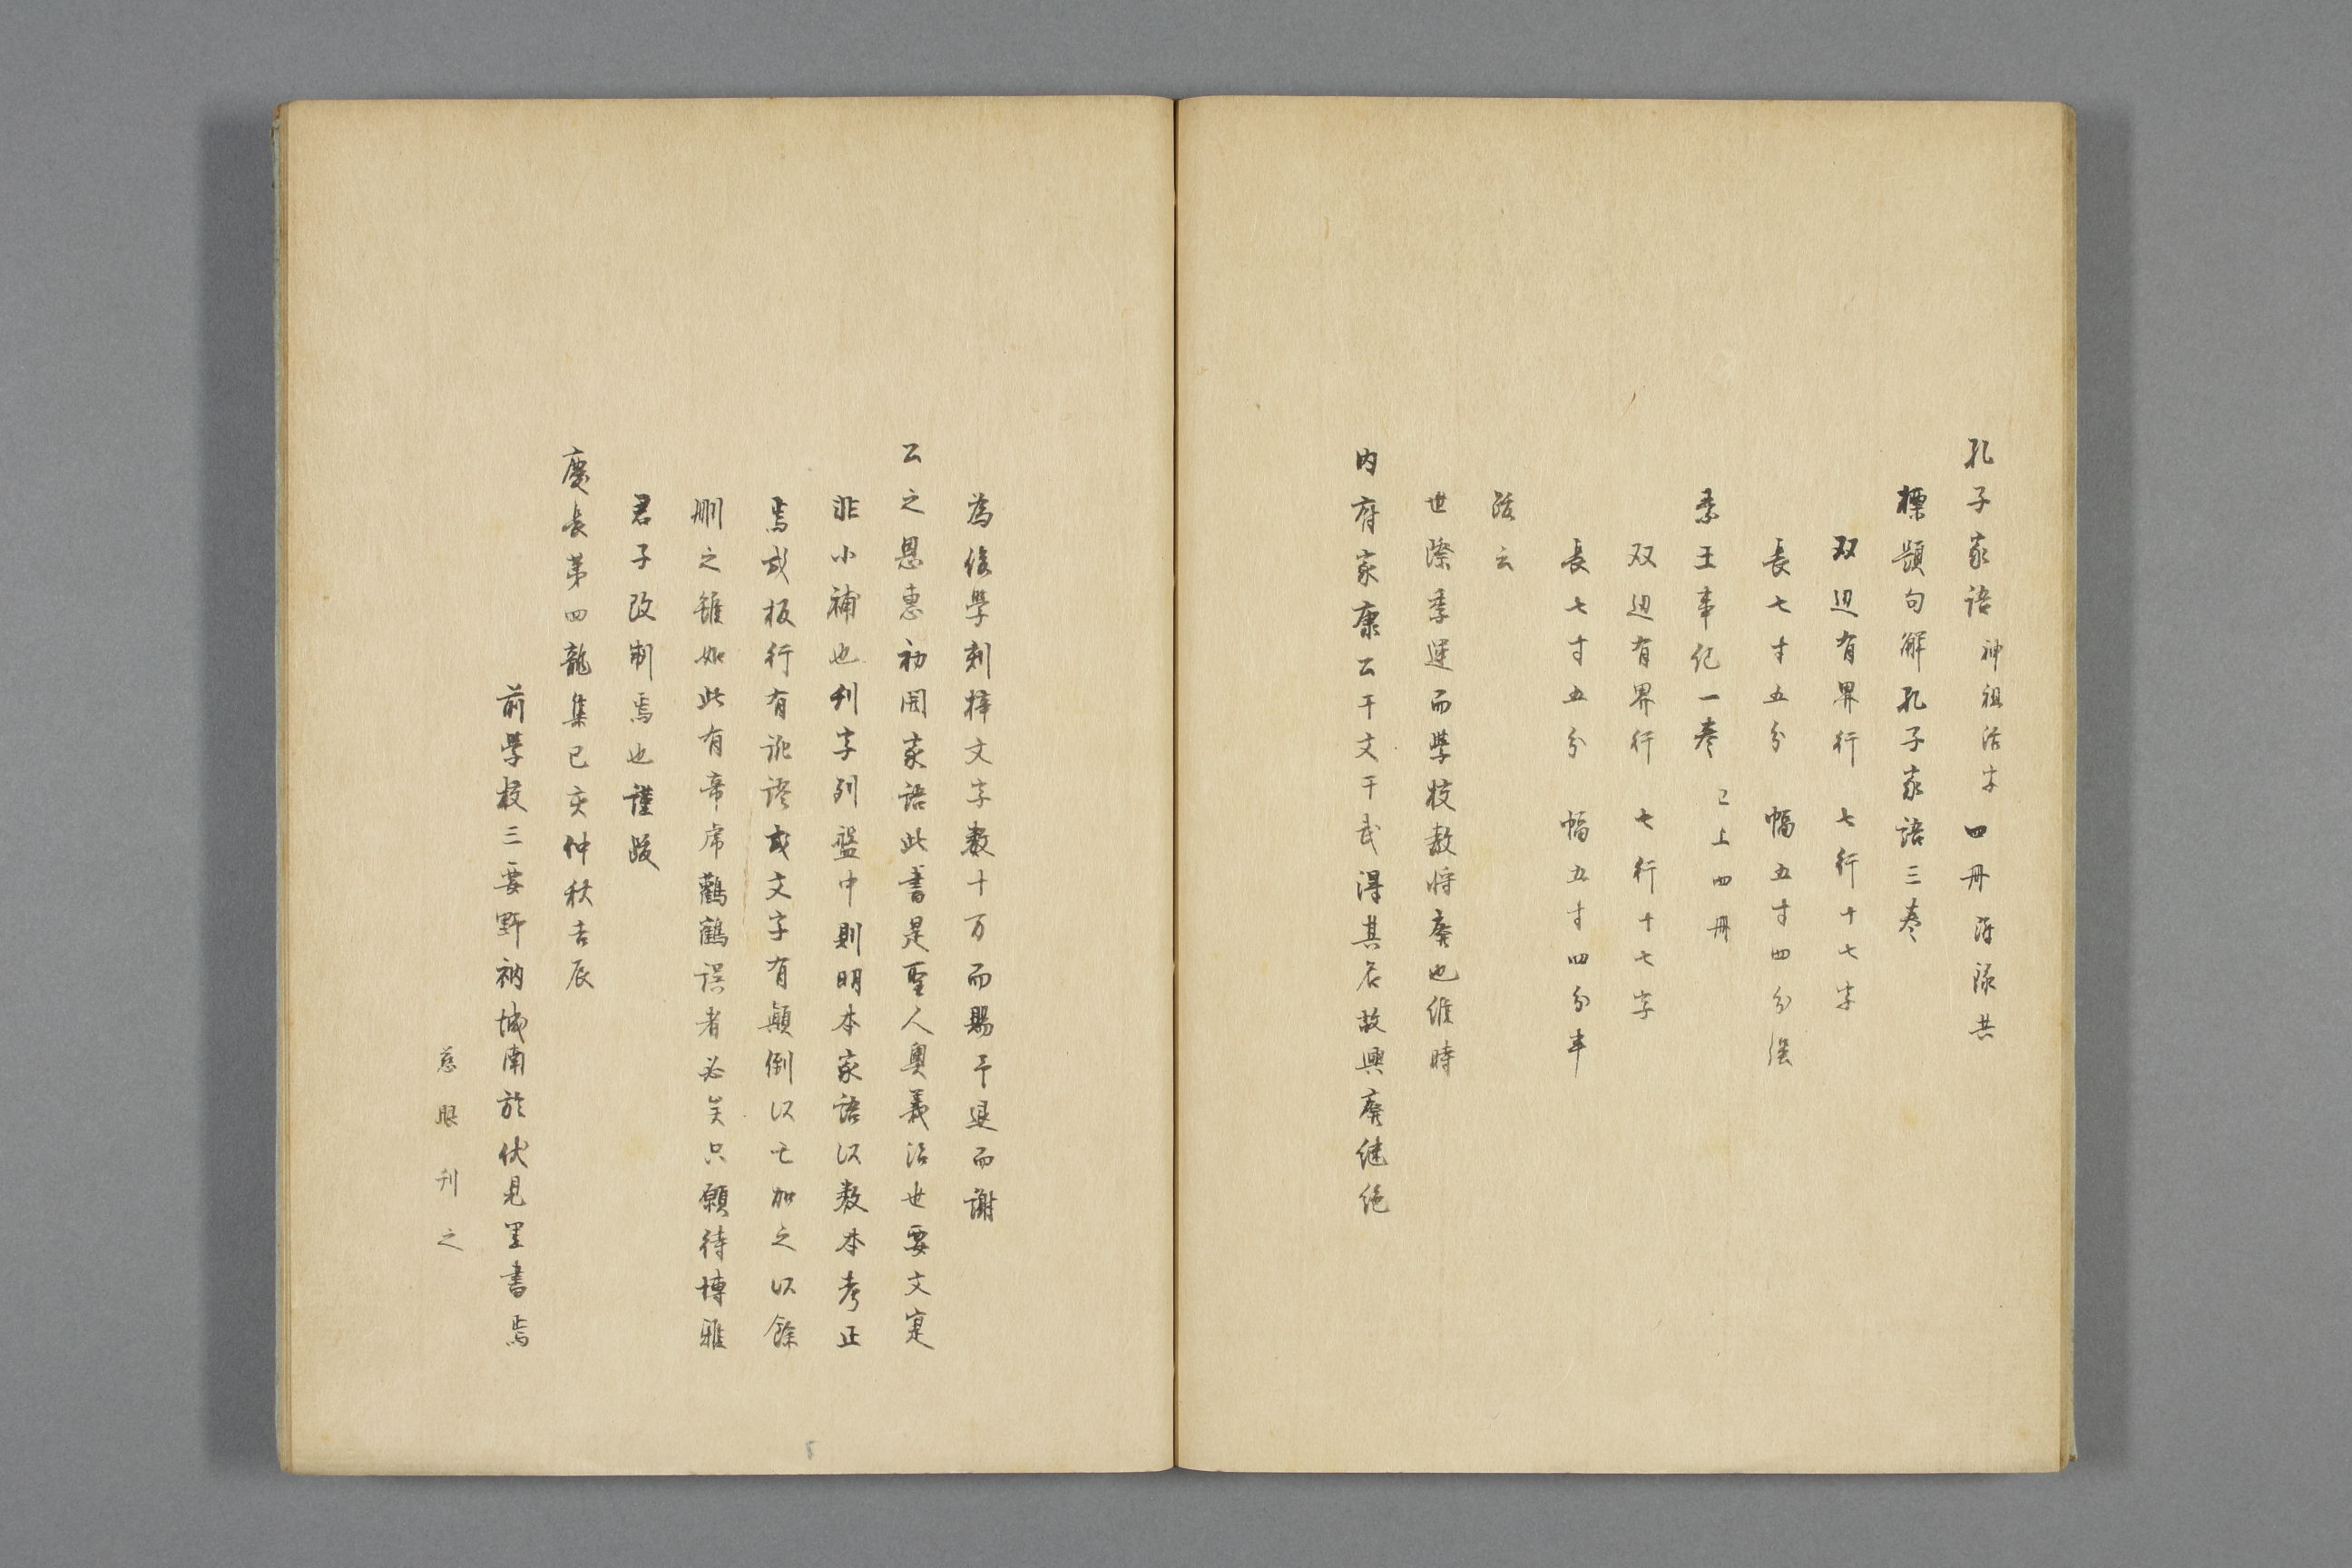 孔子家語 神祖活字 四冊 附隊共
標題句解孔子家語三巻
双辺有界行 七行十七字
長七寸五分 幅五寸四分強
素王事紀一巻 已上四冊
双辺有界行 七行十七字
長七寸五分 幅五寸四分半
跋云
世際季運而学校教将廃也維時
内府家康公干文干武得其名故興廃継絶
為後學刻梓文字数十万而賜予退而謝
公之恩惠初開家語此書是聖人奥義治世要文寔
非小補也刊字列盤中則明本家語以数本考正
焉或板行有訛謬或文字有顛倒以亡加之以餘
刪之雖如此有帝虎鸛鶴誤者必矣只願待博雅
君子改制焉也謹跋
慶長第四龍集已亥仲秋吉辰
前学校三要野衲城南於伏見里書焉
慈眼刊之